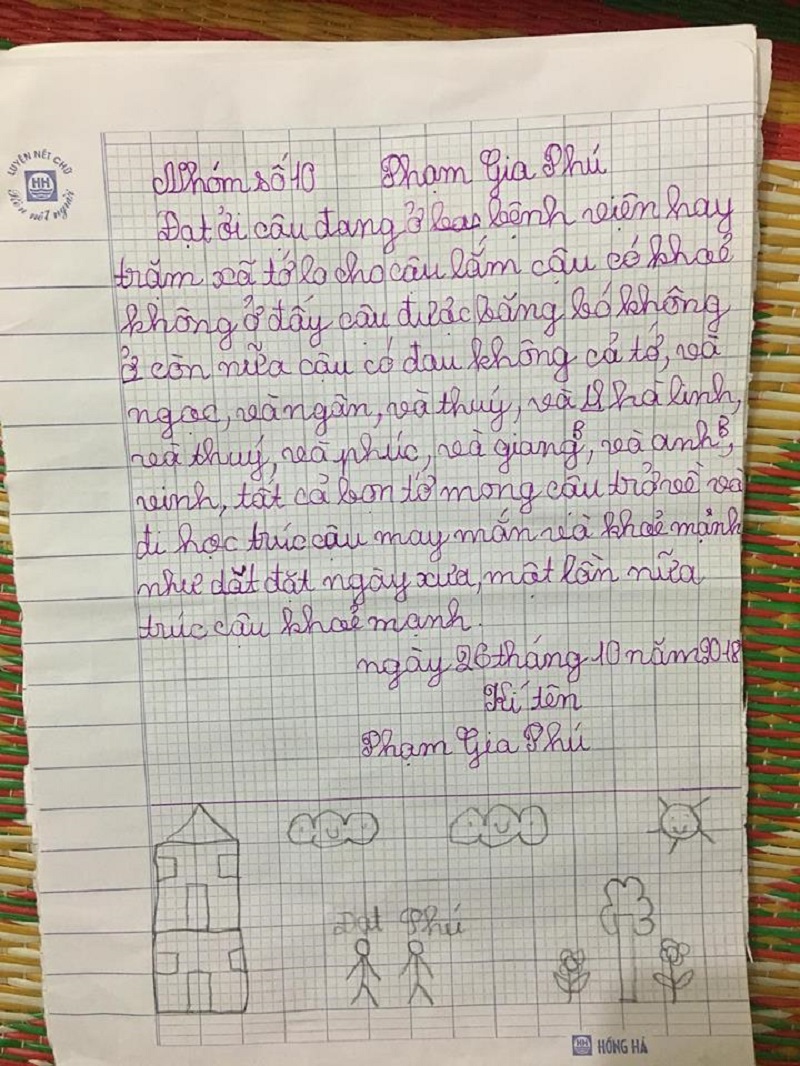 LUYỆN NÉT CHỮ
HH
Rèn nết người
Nhóm số 10 Phạm Gia Phú
Đạt ơi câu đang ở bệnh viện hay
trăm xã tớ lo cho câu lắm cậu có khoẻ
không ở đấy câu được băng bó không
còn nữa cậu có đau không cả tớ, và
ngoc, và ngân, và thuý, và hà linh,
và thuý, và phúc, và giang B, và anh B,
vinh, tất cả bon tớ mong câu trở về và
đi học trúc câu may mắn và khoẻ mạnh
như dăt đăt ngày xưa, môt lần nữa
trúc câu khoẻ mạnh.
ngày 26 tháng 10 năm 2018
Kí tên
Phạm Gia Phú
Đạt Phú
HH HỒNG HÀ